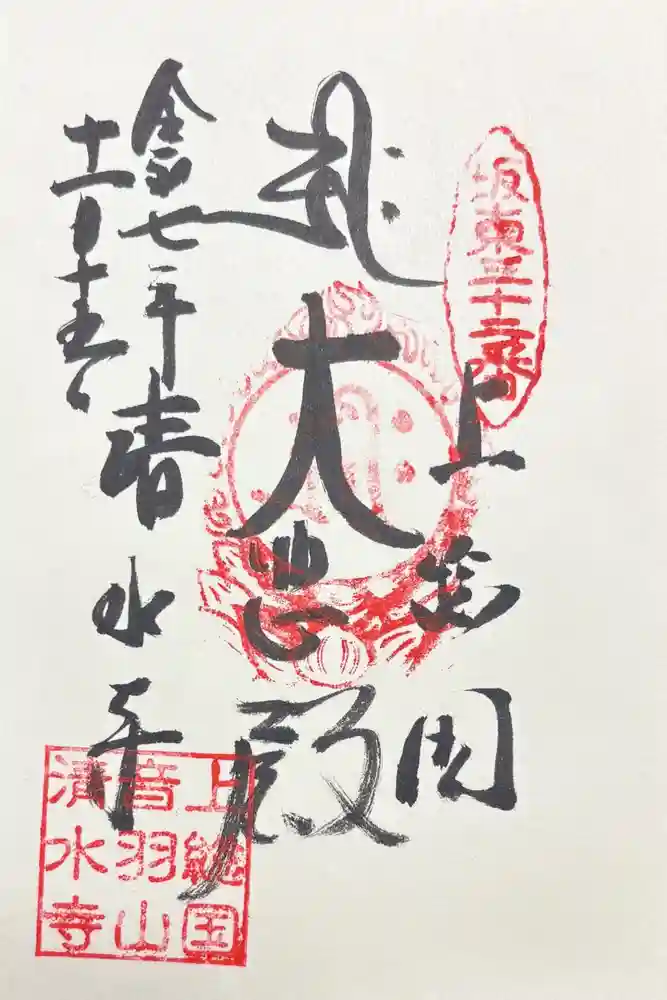 坂東三十二番
上总国
大悲殿
令和七年
十一月十五日
清水寺
上総国
音羽山
清水寺